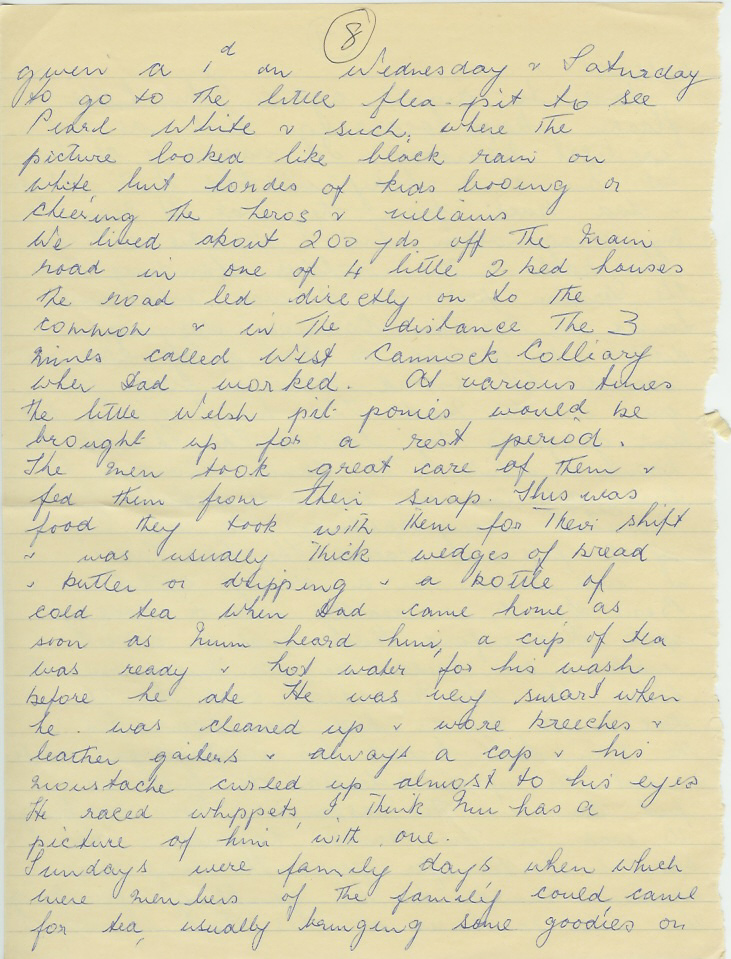 8
given a 1d on Wednesday & Saturday
to go to the little flea-pit to see
Pearl White & such, where the
picture looked like black rain on
white but hordes of kids booing or
cheering the heros & villians
We lived about 200 yds off the main
road in one of 4 little 2 bed houses
the road led directly on to the
common & in the distance the 3
mines called West Cannock Colliary
wher Dad worked. At various times
the little Welsh pit ponies would be
brought up for a rest period.
The men took great care of them &
fed them from their snap. This was
food they took with them for their shift
& was usually thick wedges of bread
& butter or dripping & a bottle of
cold tea when Dad came home as
soon as Mum heard him, a cup of tea
was ready & hot water for his wash
before he ate He was very smart when
he was cleaned up & wore breeches &
leather gaiters & always a cap & his
moustache curled up almost to his eyes
He raced whippets, I think has a
picture of him with one.
Sundays were family days when which
were members of the family could came
for tea, usually bringing some goodies on